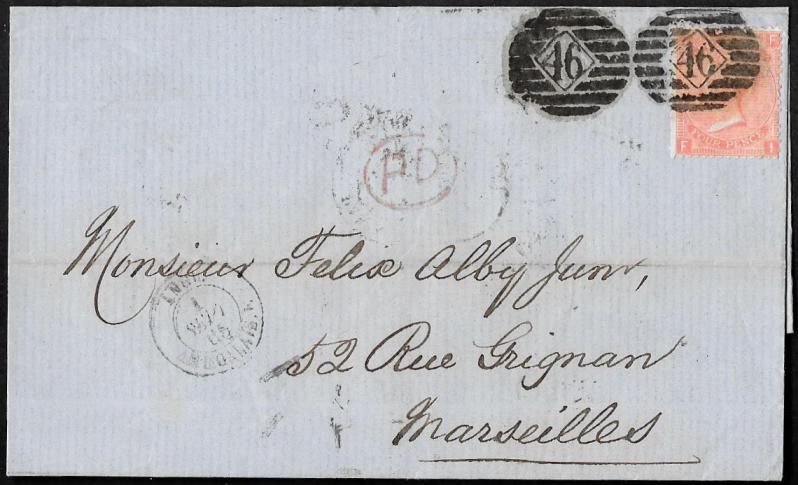 46 46
F
FOUR PENCE
F I
PD
Monsieur Felix Alby Junr,
52 Rue Grignan
Marseilles